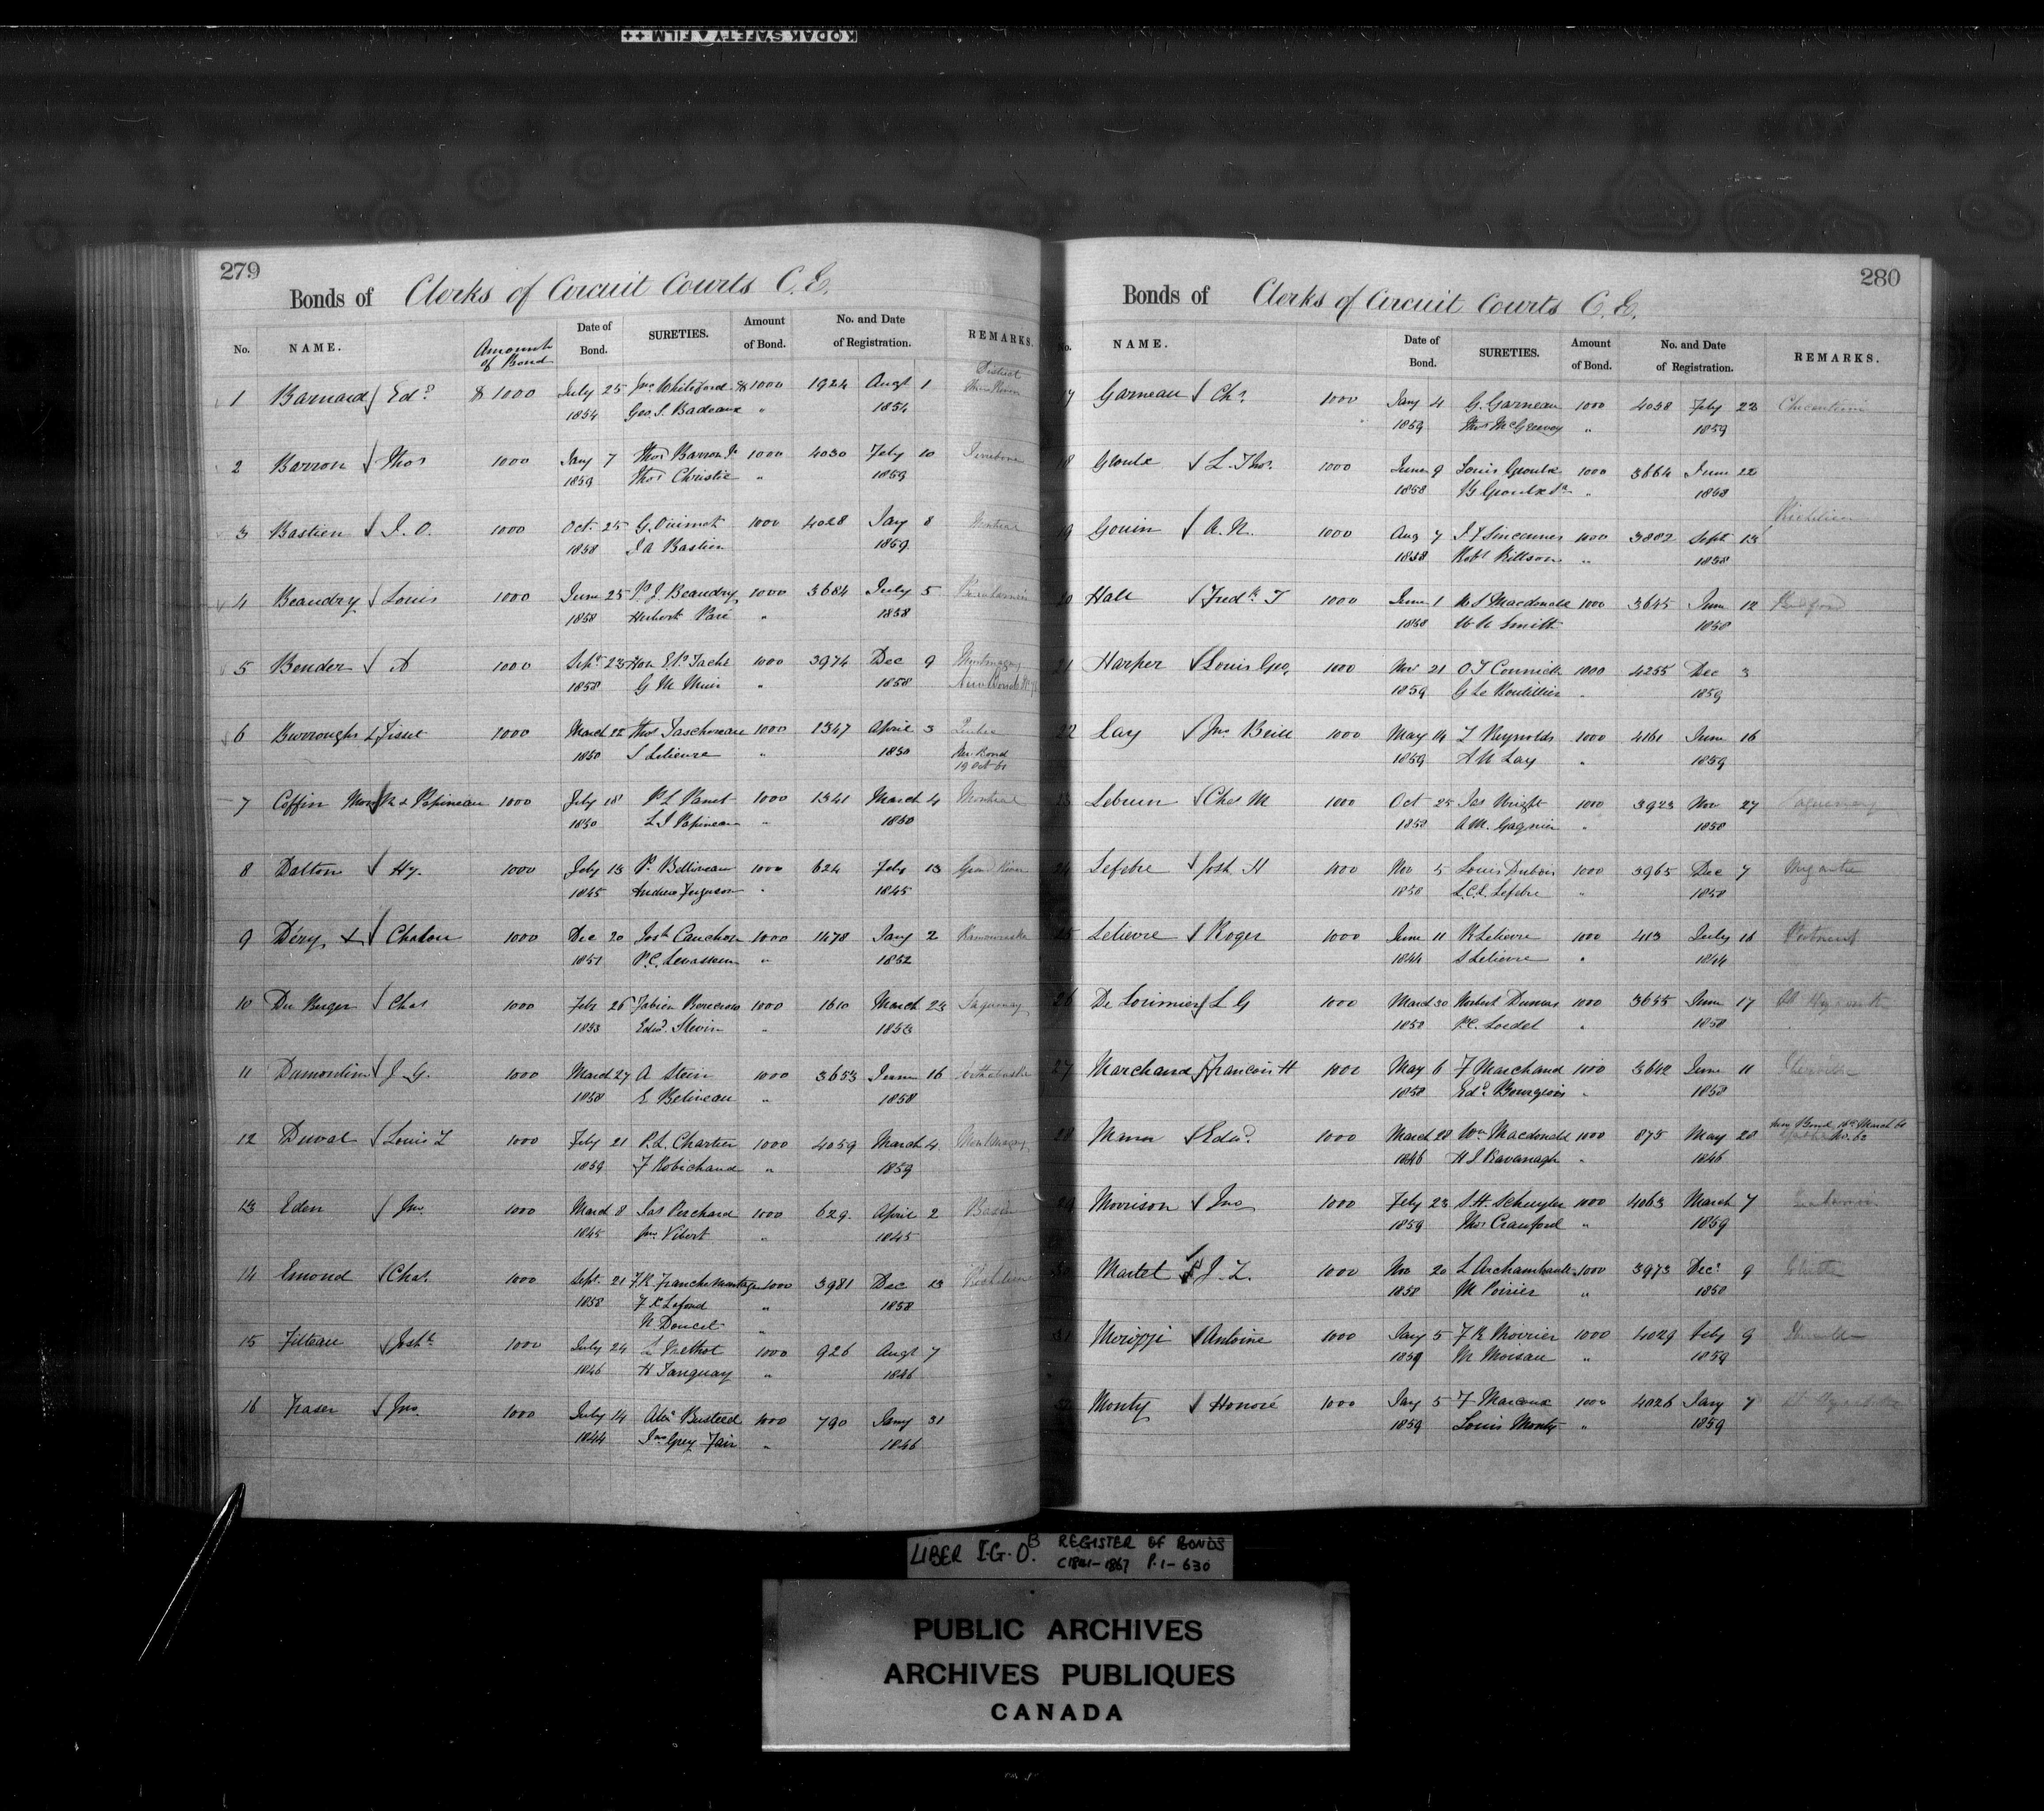 KODAK SAFETY ▲ FILM ++
279
Bonds of Clerks of Circuit Courts C.E.
No. NAME. Amount of Bond Date of Bond. SURETIES. Amount of Bond. No. and Date of Registration. REMARKS.
District
1 Barnard Edd $ 1000 July 25 Jno Whiteford $1000 1924 Augt 1 Three Rivers
1854 Geo. S. Badeaux " 1854
2 Barron Thos 1000 Jany 7 Thos Barron Jr 1000 4030 Feby 10 Terrebonne
1859 Thos Christie " 1859
3 Bastien J. O. 1000 Oct. 25 G. Ouimet 1000 4028 Jany 8 Montreal
1858 J A Bastien 1859
4 Beaudry Louis 1000 June 25 P. J. Beaudry 1000 3684 July 5
1858 Hubert Paré " 1858
5 Bender A 1000 Sept. 23 Hon E. P. Taché 1000 3974 Dec 9 Montmagny
1858 G M Muir " 1858 New Bond
6 Burroughs & Fiset 1000 March 22 Thos Taschereau 1000 1347 April 3 Quebec
1850 S Lelievre " 1850 New Bond
19 Oct 61
7 Coffin & Papineau 1000 Feby 18 P L Panet 1000 1341 March 4 Montreal
1850 L J Papineau " 1850
8 Dalton Hy. 1000 Feby 13 P. Belliveau 1000 624 Feby 13 Grand River
1845 Andrew Ferguson " 1845
9 Déry & Chaloux 1000 Dec 20 Josh Cauchon 1000 1478 Jany 2 Kamouraska
1851 P. C. Levasseur " 1852
10 Du Berger Chas 1000 Feby 26 Fabien 1000 1610 March 23 Saguenay
1853 Edwd. Slevin " 1853
11 Dumoulin J. G. 1000 March 27 A Stein 1000 3653 June 16 Arthabaska
1858 E Beliveau " 1858
12 Duval Louis Z 1000 Feby 21 P. L. Chartier 1000 4059 March 4 Montmagny
1859 F Robichaud " 1859
13 Eden Jno. 1000 March 8 Jas Perchard 1000 629 April 2
1845 Jno Vibert " 1845
14 Emond Chas. 1000 Sept. 21 1000 3981 Dec 13 Richelieu
1858 F X Lafond " 1858
N Doucet "
15 Filteau Josh. 1000 July 24 L Methot 1000 926 Augt 7
1846 H Tanguay " 1846
16 Fraser Jno. 1000 July 14 Alex Busteed 1000 790 Jany 31
1844 Jno Grey Fair " 1846
280
Bonds of Clerks of Circuit Courts C.E.
No. NAME. Date of Bond. SURETIES. Amount of Bond. No. and Date of Registration. REMARKS.
17 Garneau Chs. 1000 Jany 4 G. Garneau 1000 4038 Feby 23 Chicoutimi
1859 Thos McGreevy " 1859
18 Groulx L. Thos. 1000 June 9 Louis Groulx 1000 3664 June 22
1858 B Groulx " 1858
Richelieu
19 Gouin A. N. 1000 Aug 7 1000 3802 Sept 13
1858 Robt Kittson " 1858
20 Hall Fredk T 1000 June 1 R S Macdonald 1000 3645 June 12 Bedford
1858 Smith 1858
21 Harper Louis Geo, 1000 Nov 21 O T Connick 1000 4255 Dec 3
1859 G Le Boutillier " 1859
22 Lay Jno Bell 1000 May 14 T Reynolds 1000 4161 June 16
1859 A W Lay " 1859
23 Lebrun Chas M 1000 Oct 25 Jas Wright 1000 3923 Nov 27 Saguenay
1858 A M. Gagnier " 1858
24 Lefebre Josh H 1000 Nov 5 Louis Dubois 1000 3965 Dec 7 Megantic
1858 L.C.L. Lefebre " 1858
25 Lelievre Roger 1000 June 11 R Lelievre 1000 413 July 16 Portneuf
1844 S Lelievre " 1844
26 De Lorimier L G 1000 March 30 Norbert Dumas 1000 3655 June 17 St Hyacinth
1858 P.C. Loedel " 1858
27 Marchand Francois H 1000 May 6 F Marchand 1000 3642 June 11 Iberville
1858 Edd. Bourgeois " 1858
28 Mann Edwd. 1000 March 28 Wm Macdonald 1000 875 May 28 New Bond March 60
1846 H J Kavanagh " 1846
29 Morrison Jno 1000 Feby 23 S. H. Schuyler 1000 4063 March 7
1859 Thos Crawford " 1859
30 Martel J. Z. 1000 Nov 20 L Archambault 1000 3973 Decr 9 Joliette
1858 M Poirier " 1858
31 Antoine 1000 Jany 5 1000 4029 Feby 9
1859 M Moisan " 1859
32 Monty Honoré 1000 Jany 5 F Marcoux 1000 4026 Jany 7 St Hyacinthe
1859 Louis Monty " 1859
LIBER I.G.O.B REGISTER OF BONDS
C1841-1867 P.1-630
PUBLIC ARCHIVES
ARCHIVES PUBLIQUES
CANADA